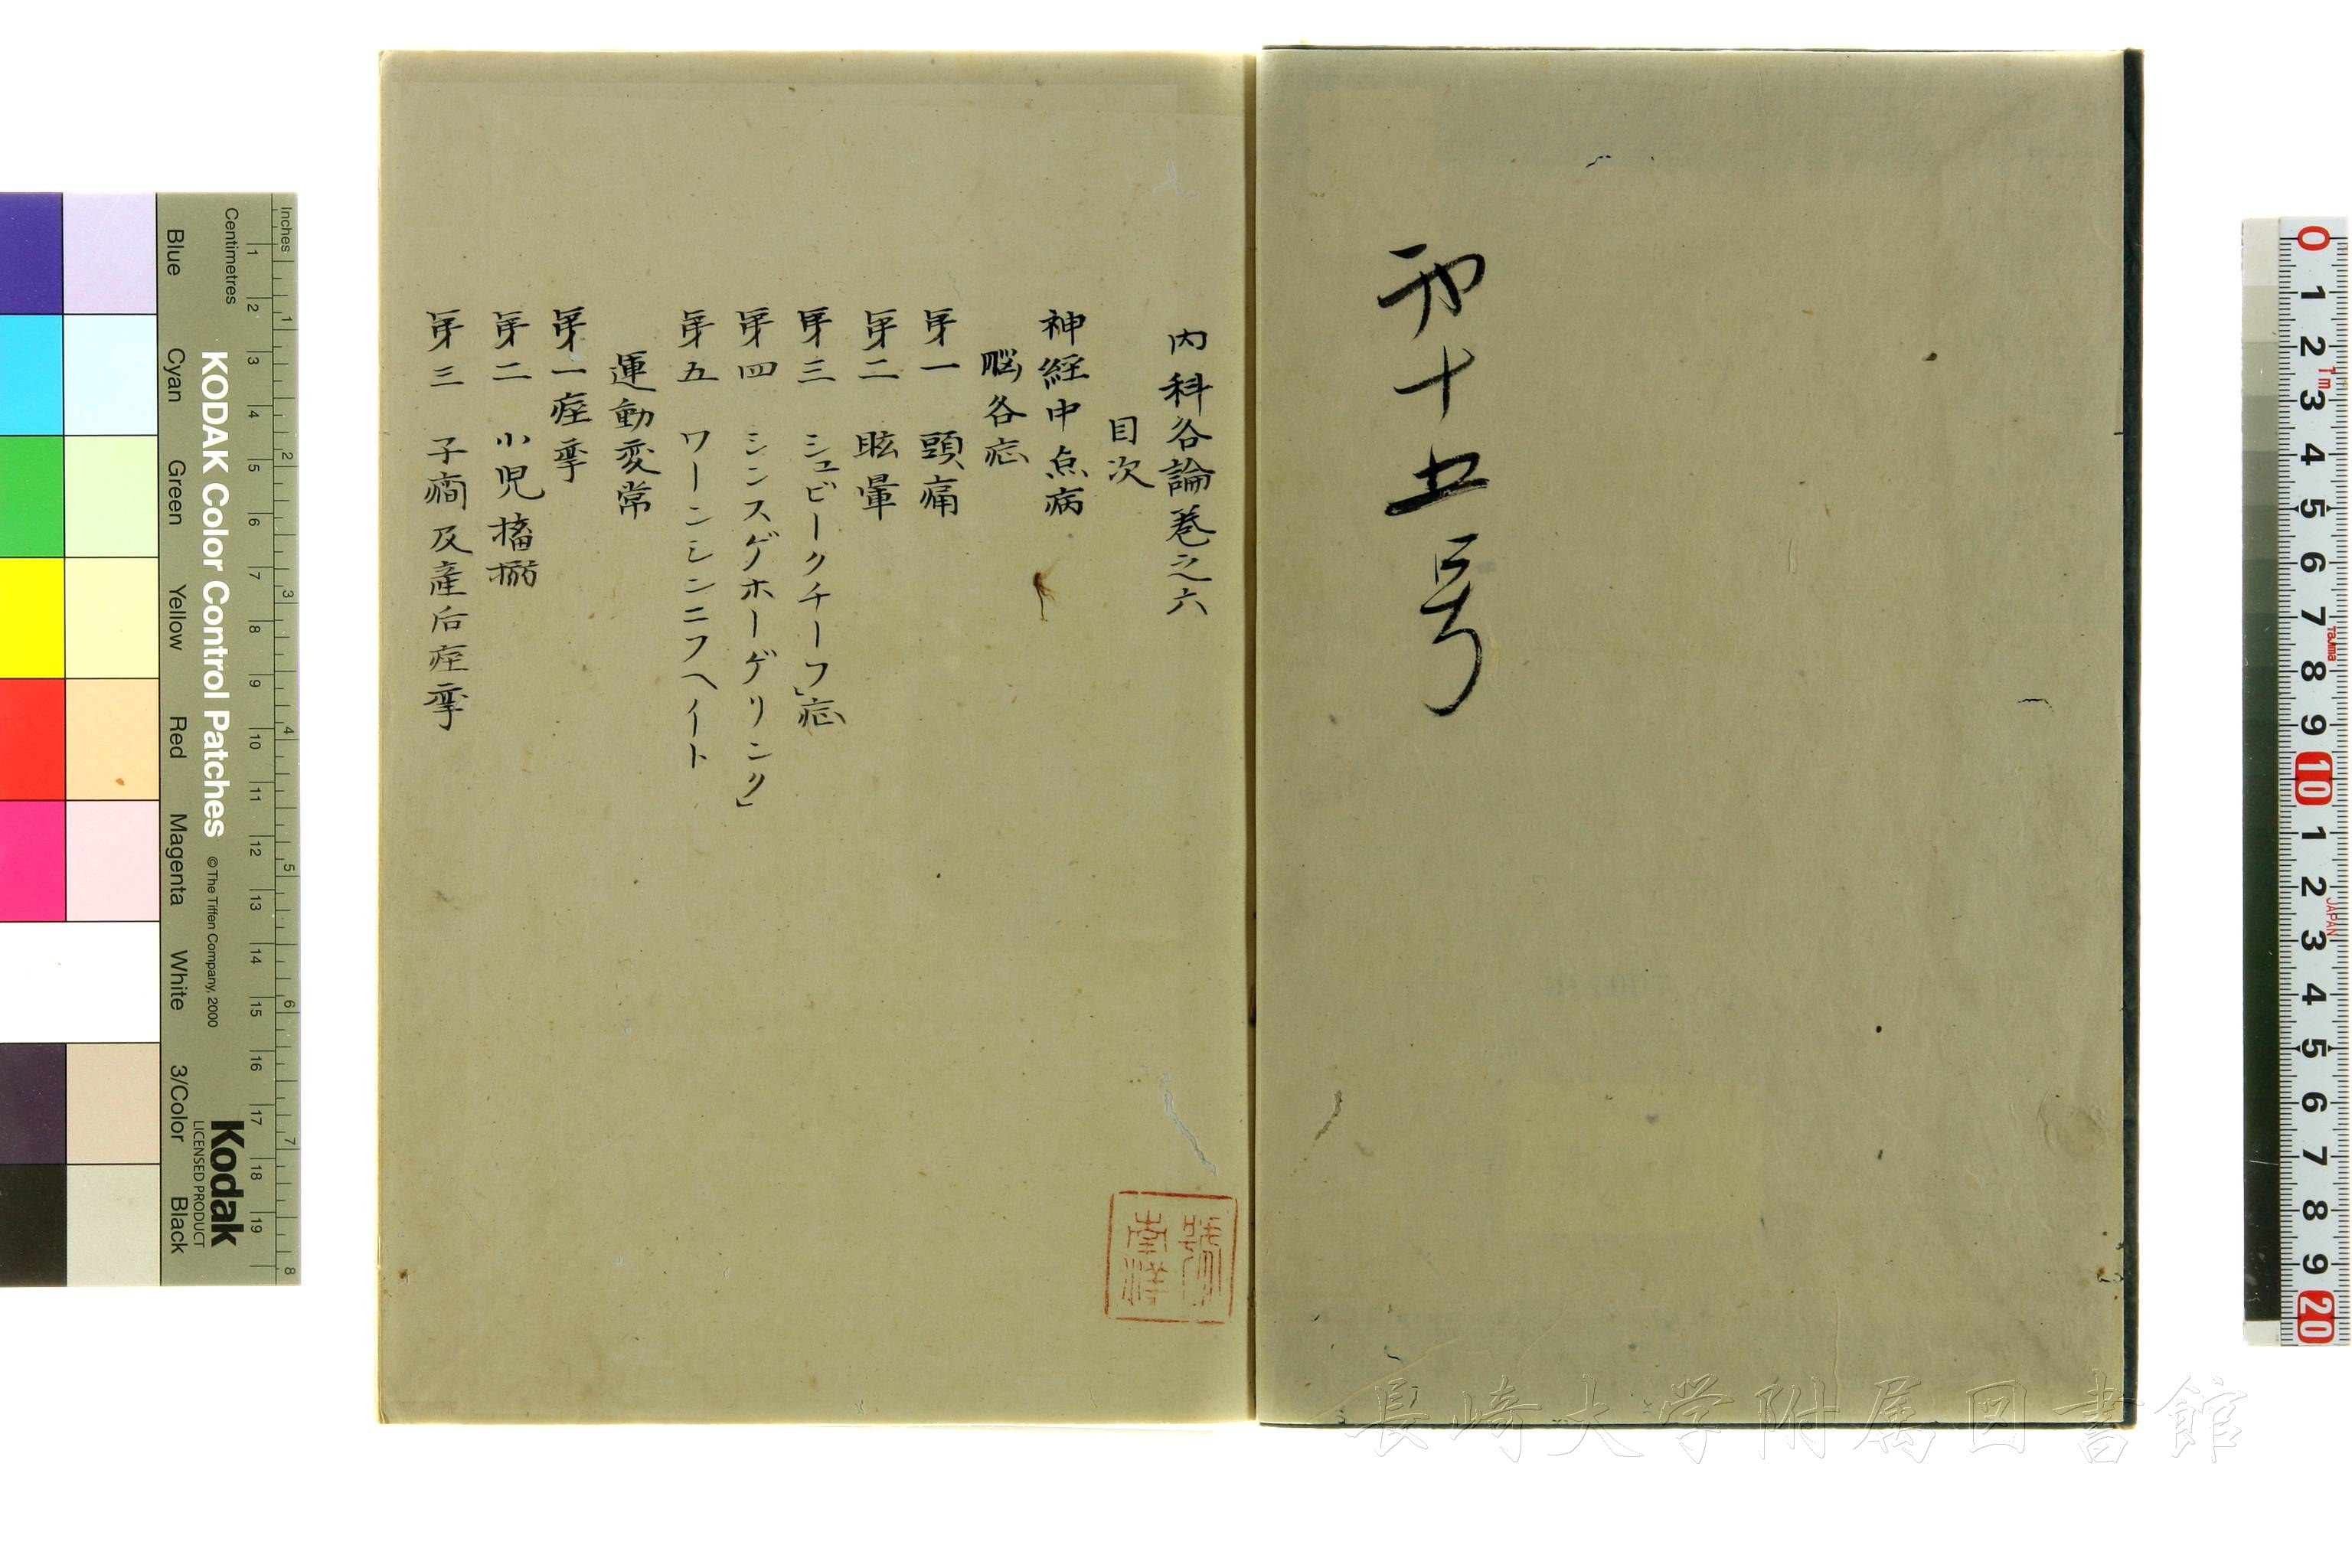 第十五号
内科各論巻之六
目次
神経中点病
脳各症
第一 頭痛
第二 眩暈
第三 シュビークチーフ」症
第四 シンスゲホーゲリンク」
第五 ワーンシンニフヘイト
運動変常
第一 痙攣
第二 小児搐搦
第三 子癇及産后痙攣
長崎大学附属図書館
Inches
Centimetres
KODAK Color Control Patches
©The Tiffen Company, 2000
Kodak
LICENSED PRODUCT
Blue
Cyan
Green
Yellow
Red
Magenta
White
3/Color
Black
1 2 3 4 5 6 7 8 9 10 11 12 13 14 15 16 17 18 19
1 2 3 4 5 6 7 8
0 1 2 3 4 5 6 7 8 9 10 1 2 3 4 5 6 7 8 9 20
1m
Tajima
JAPAN